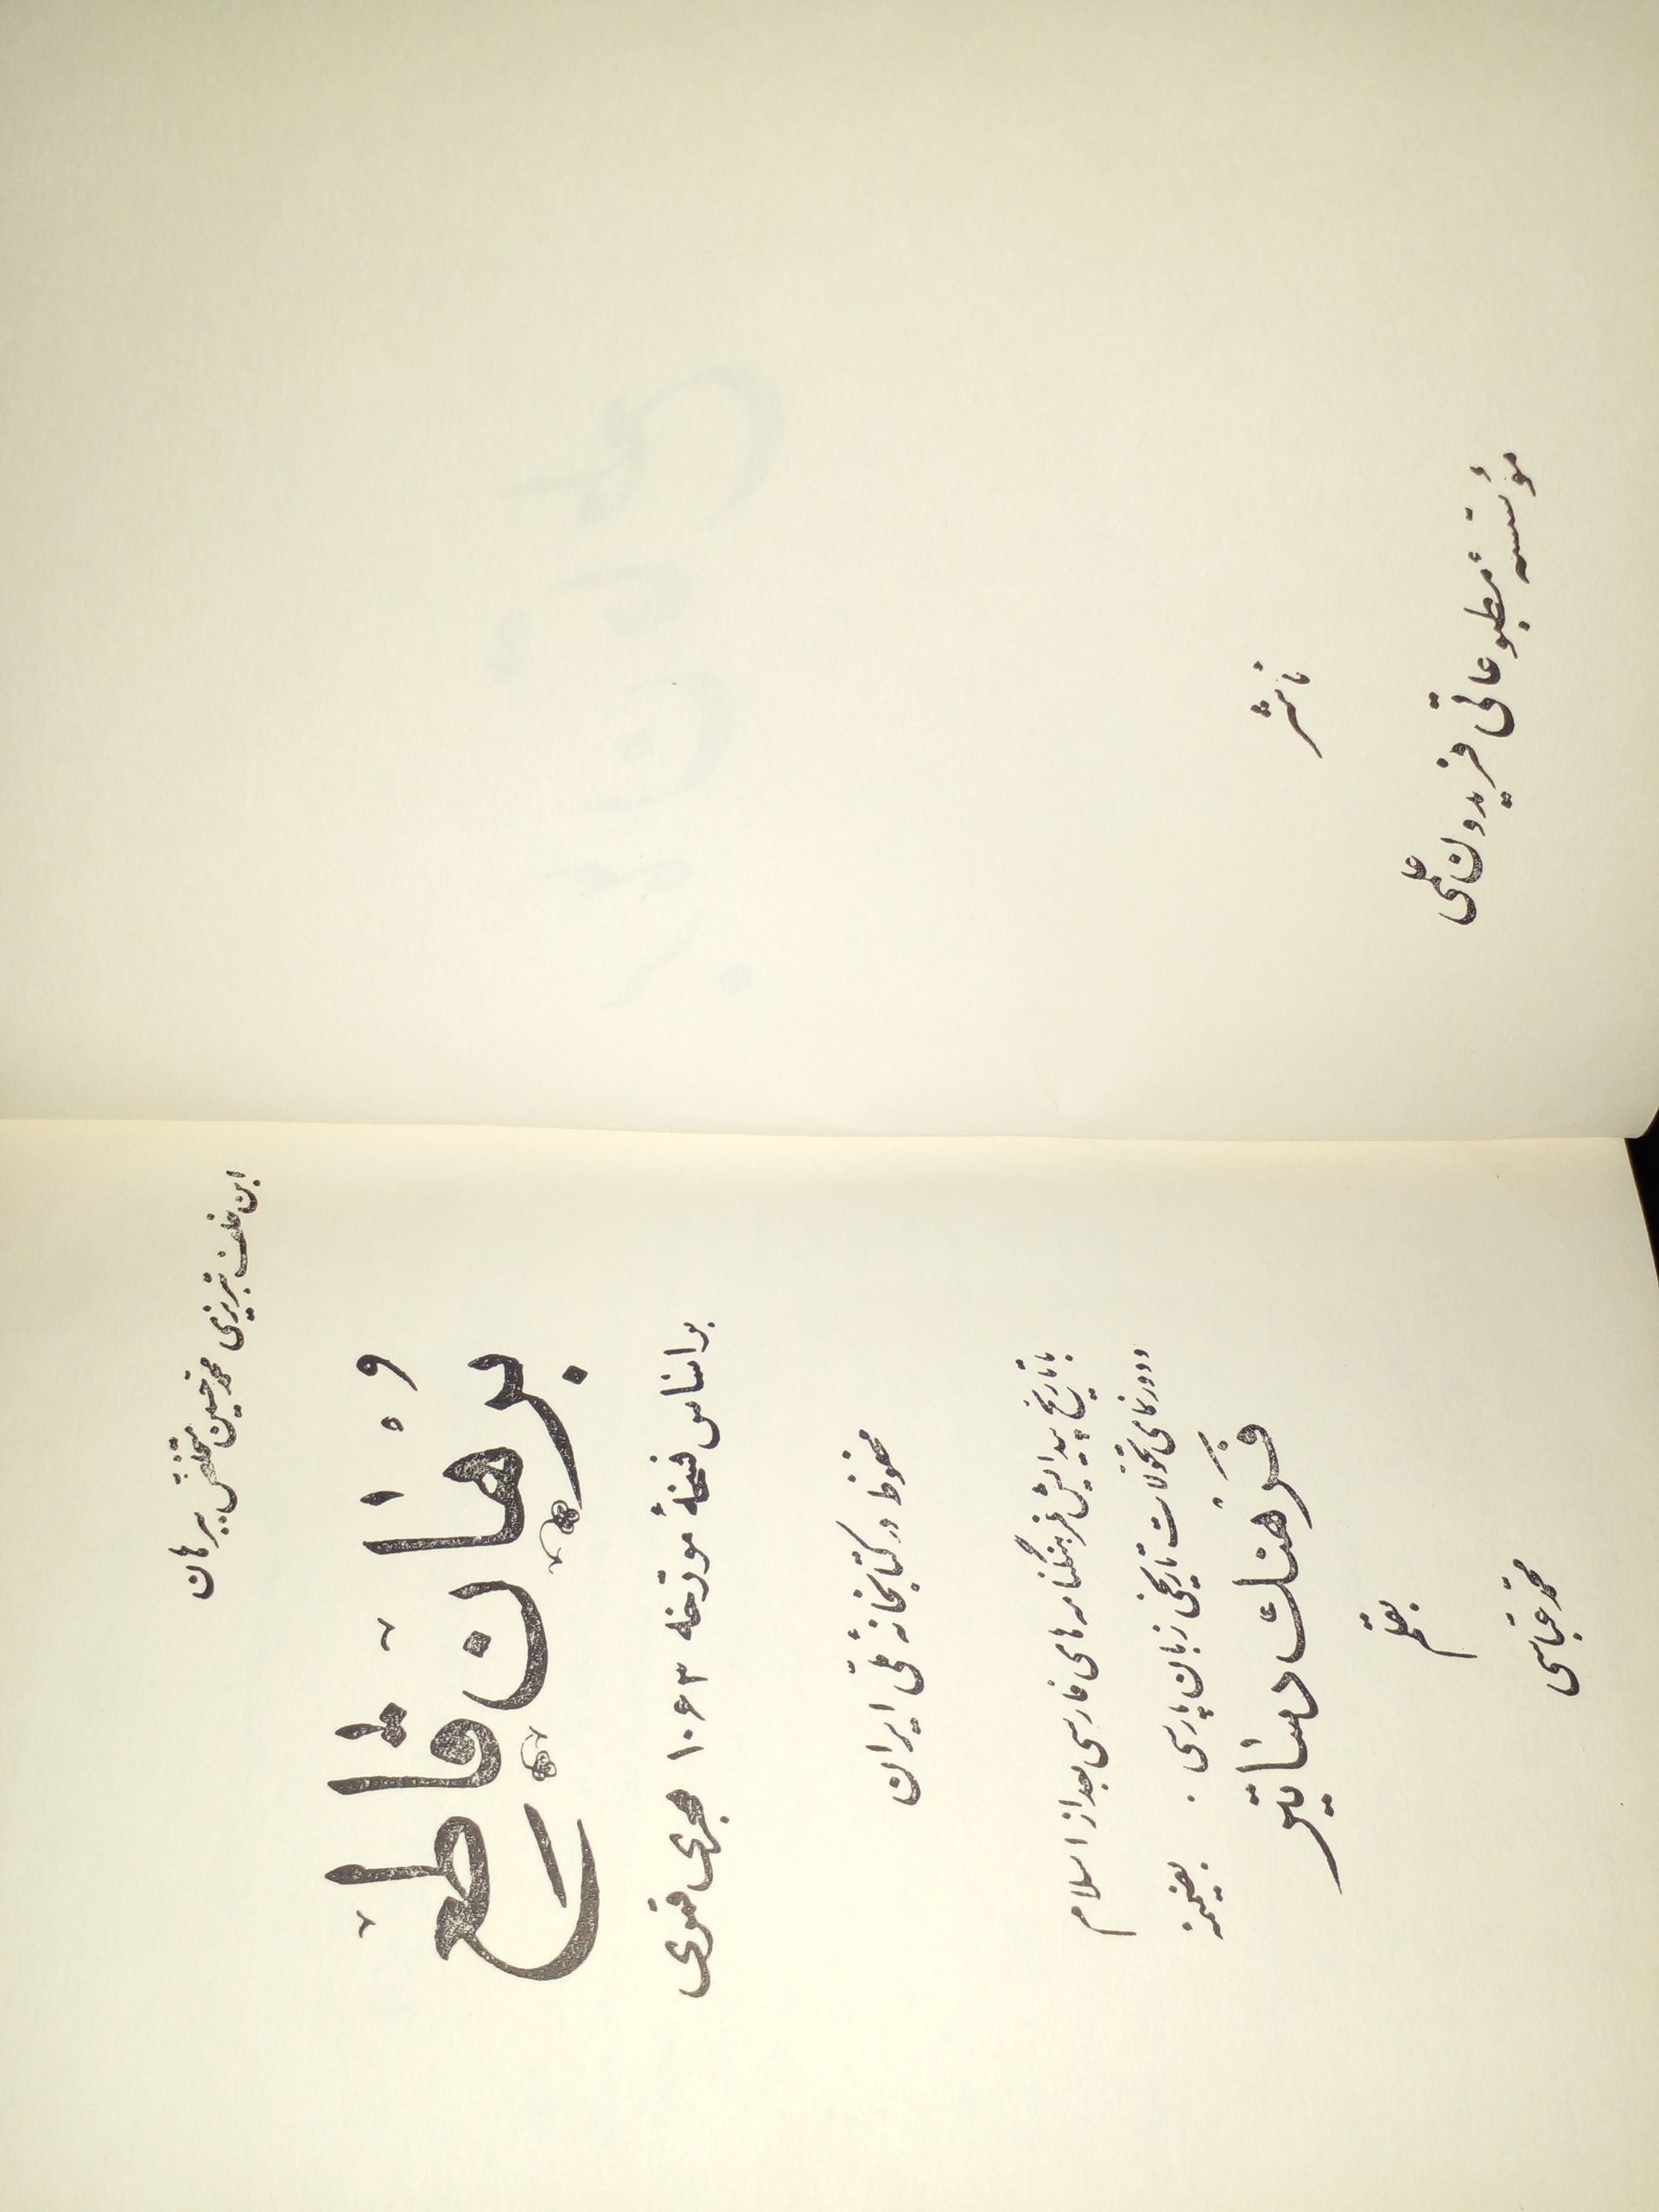 ابن خلف تبریزی محمد حسین متخلّص ببرهان
بُرهان قاطع
بر اساس نسخهٔ مورّخه ۱۰۶۳ هجری قمری
محفوظ در کتابخانهٔ ملّی ایران
با تاریخ پیدایش فرهنگنامه‌های فارسی بعد از اسلام
و دورنمای تحوّلات تاریخی زبان پارسی . بضمیمه
فَرهنك دساتیر
بقلم
محمّد عبّاسی
ناشر
مؤسّسهٔ مطبوعاتی فریدون علمی